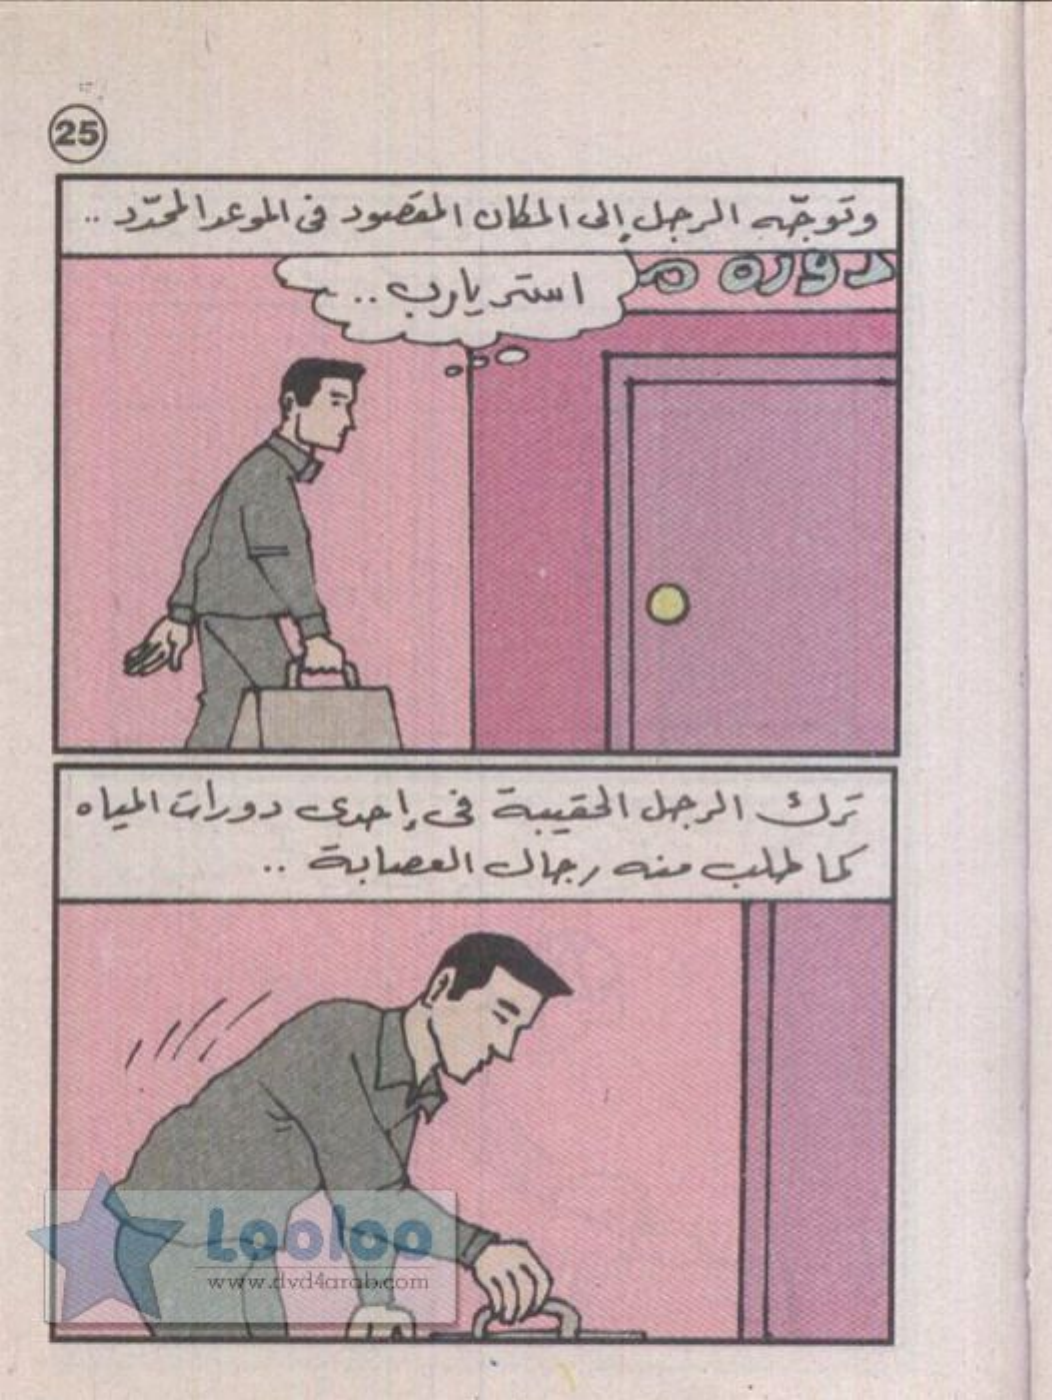 25
وتوجّه الرجل إلى المكان المقصود فى الموعد المحدّد ..
دورة م
استر يارب ..
ترك الرجل الحقيبة فى إحدى دورات المياه
كما طلب منه رجال العصابة ..
Looloo
www.dvd4arab.com